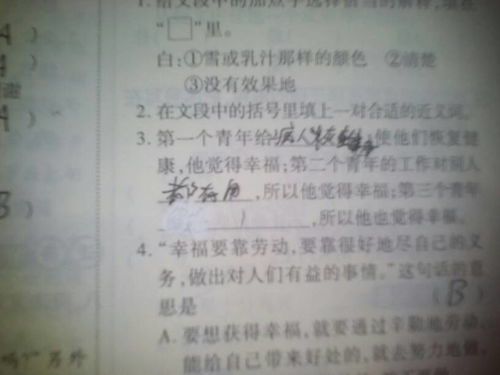 1. 给文段中的加点字选择恰当的解释,填在
“□”里。
白:①雪或乳汁那样的颜色 ②清楚
③没有效果地
2. 在文段中的括号里填上一对合适的近义词。
3. 第一个青年给病人,使他们恢复健
康,他觉得幸福;第二个青年的工作对别人
都有用,所以他觉得幸福;第三个青年
,所以他也觉得幸福。
4. “幸福要靠劳动,要靠很好地尽自己的义
务,做出对人们有益的事情。”这句话的意
思是 (B)
A. 要想获得幸福,就要通过辛勤地劳动,
能给自己带来好处的,就去努力地做,